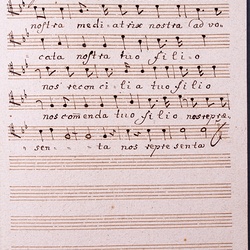 nostra medi-atrix nostra advo-
cata nostra tuo filio
nos recon-ci-lia tuo filio
nos comenda tuo filio nos repræ-
sen-ta nos representa